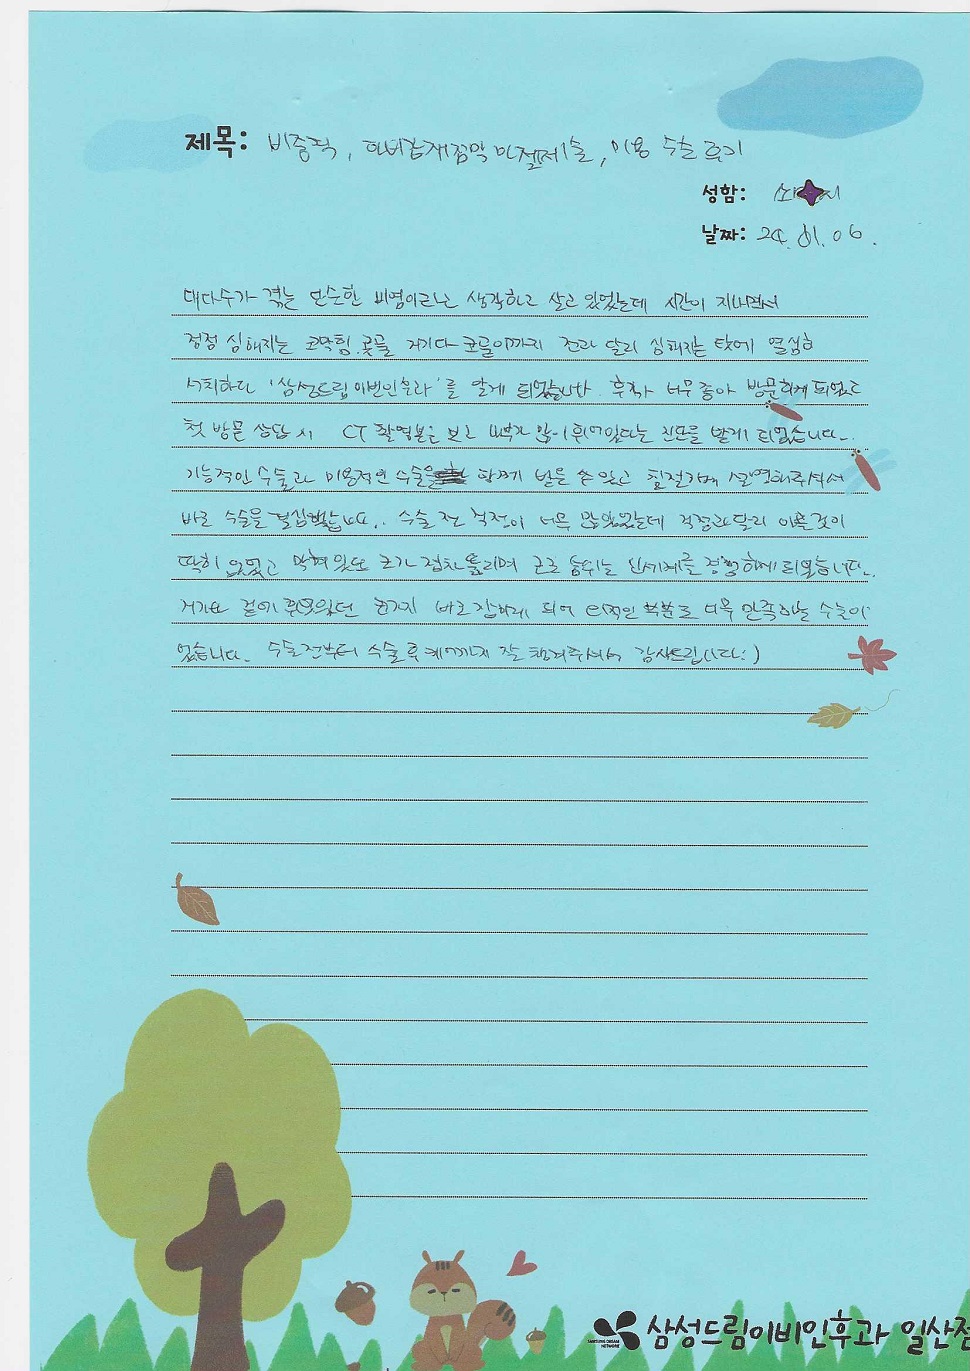 제목: 비중격, 하비갑개점막하절제술, 미용 수술 후기
성함:
날짜: 24. 01. 06.
대다수가 겪는 단순한 비염이라고 생각하고 살고 있었는데 시간이 지나면서
점점 심해지는 코막힘, 콧물 거기다 코골이까지 전과 달리 심해지는 탓에 열심히
서치하다 '삼성드림이비인후과'를 알게 되었습니다. 후기가 너무 좋아 방문하게 되었고
첫 방문 상담 시 CT 촬영본을 보고 내부가 많이 휘어있다는 진단을 받게 되었습니다..
기능적인 수술과 미용적인 수술을 함께 받을 수 있고 친절하게 설명해주셔서
바로 수술을 결심했습니다.. 수술 전 걱정이 너무 많았었는데 걱정과 달리 아픈것이
딱히 없었고 막혀있던 코가 점차 뚫리며 코로 숨쉬는 신세계를 경험하게 되었습니다..
거기다 겉에 휘어있던 코까지 바로 잡히게 되어 외적인 부분도 더욱 만족하는 수술이
었습니다. 수술전부터 수술 후 케어까지 잘 챙겨주셔서 감사드립니다:)
SAMSUNG DREAM
NETWORK
삼성드림이비인후과 일산점